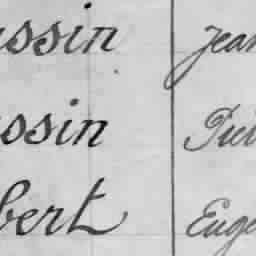 ssin Jean
ossin Pier
bert Euge